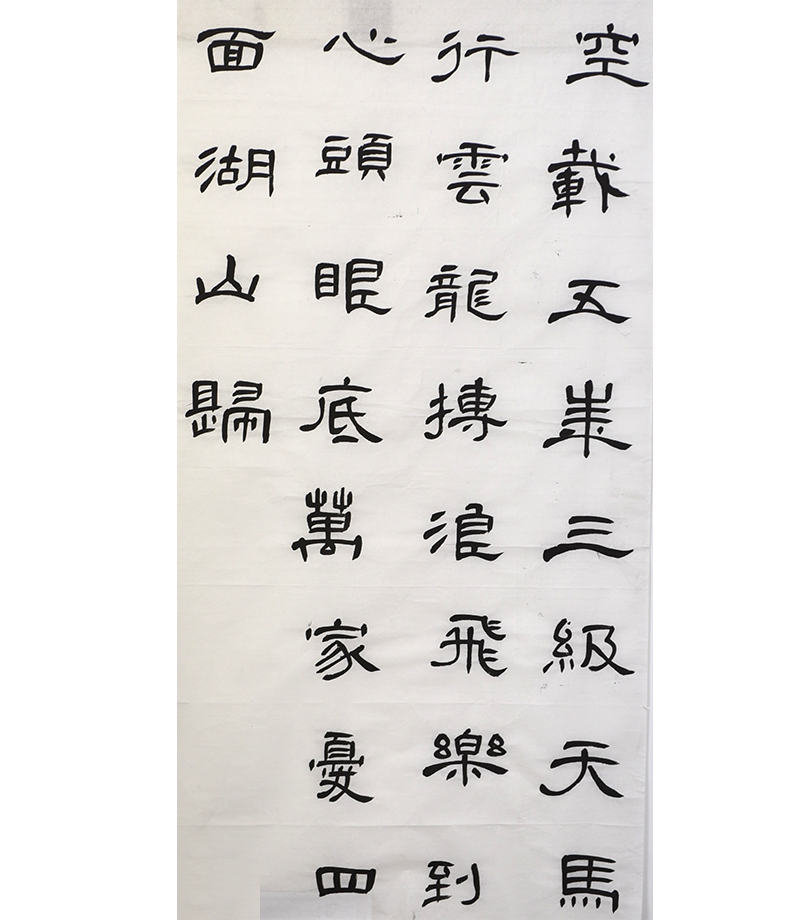 空載五三級天馬
行雲龍搏浪飛樂到
心頭眼底萬家憂四
面湖山歸